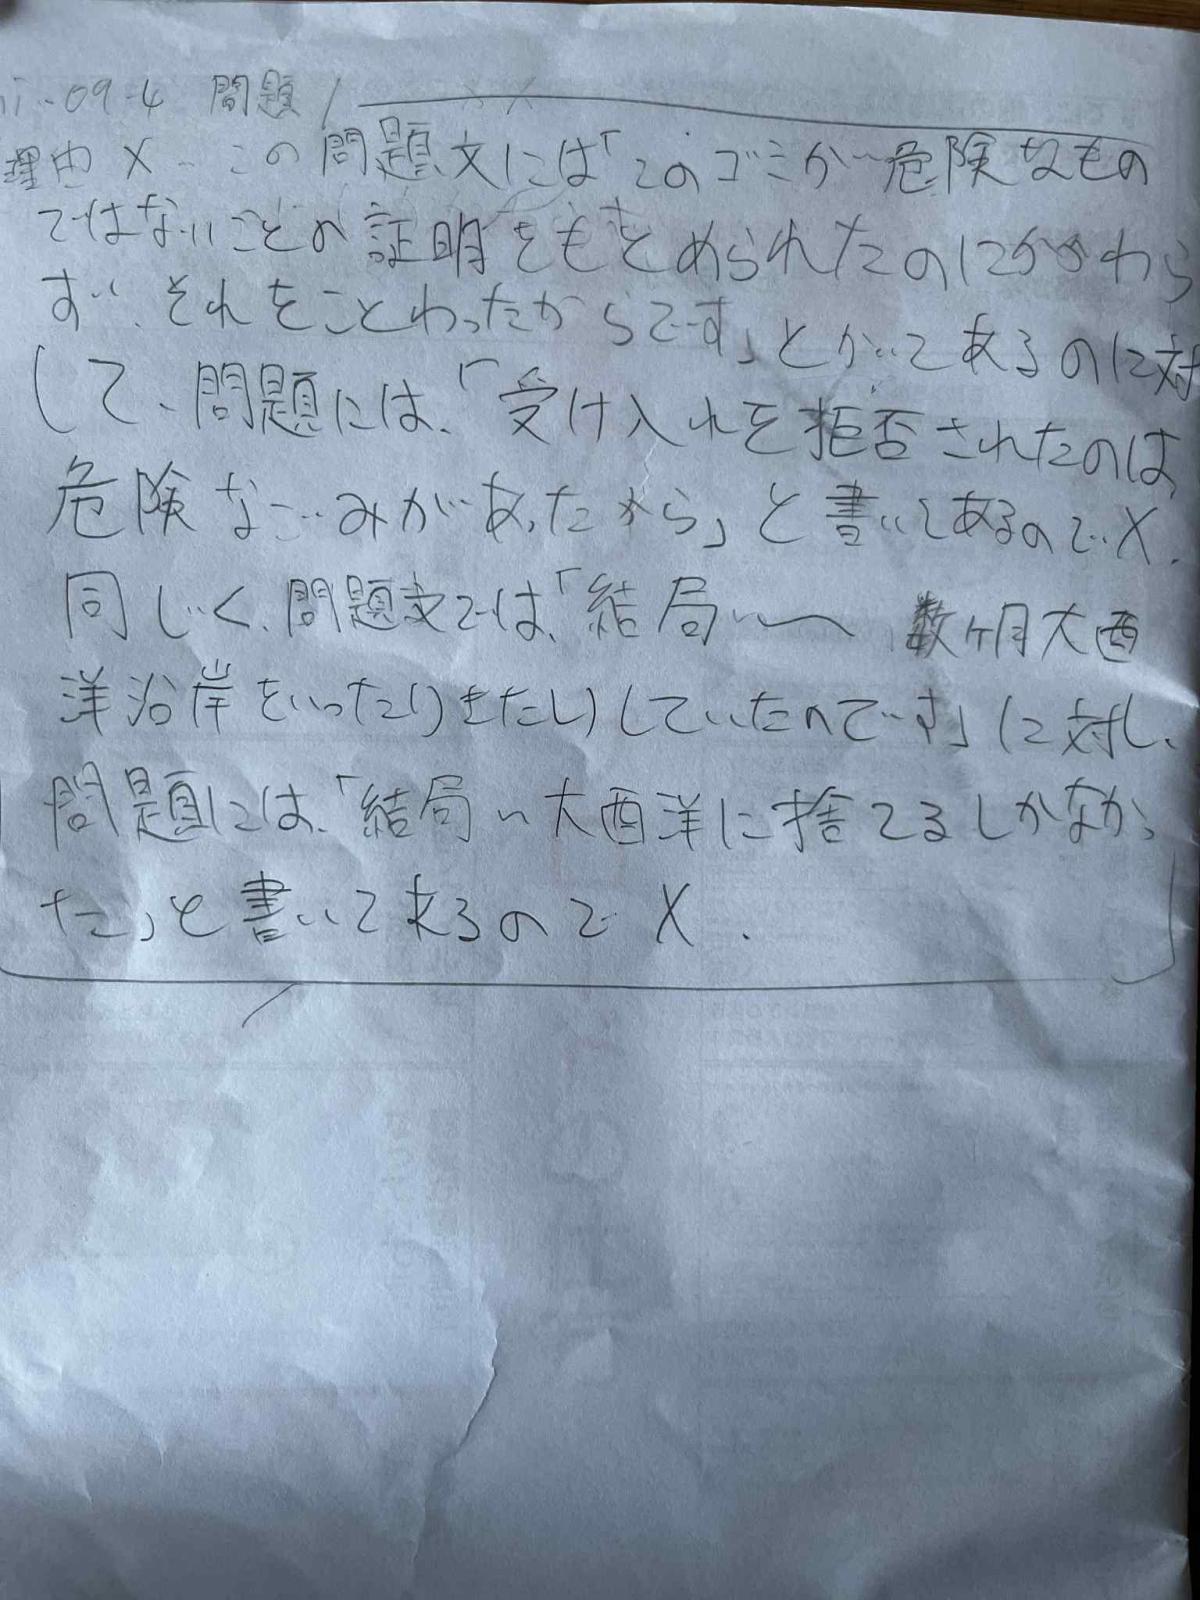 -09-4 問題1
理由 X この問題文には「このゴミが危険なもの
ではないことの証明をもとめられたのにかかわら
ず、それをことわったからです」とかいてあるのに対
して、問題には、「受け入れを拒否されたのは
危険なごみがあったから」と書いてあるので、X.
同じく、問題文では、「結局〜 数ヶ月大西
洋沿岸をいったりきたりしていたのです」に対し、
問題には、「結局〜大西洋に捨てるしかなかっ
た」と書いてあるので X.